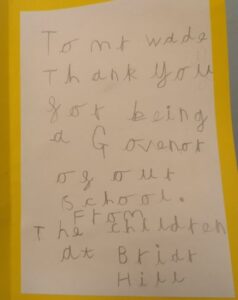 To mr wade
Thank you
for being
a Govenor
of our
school.
From
The children
at Briar
Hill